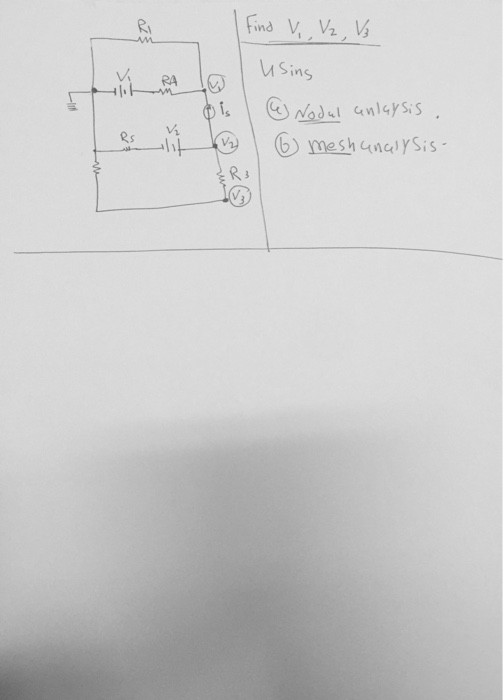 R1
V1
RA
V1
is
R5
V2
V2
R3
V3
Find V1, V2, V3
Using
(a) Nodal anlaysis.
(b) mesh analysis.